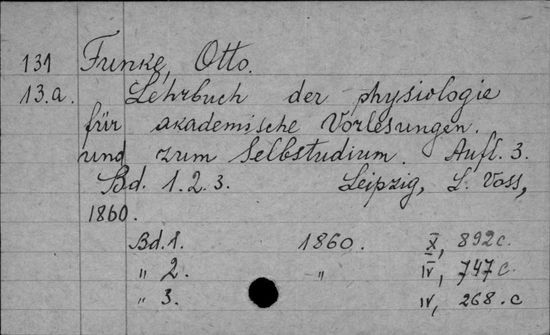 131 Funke, Otto.
13.a. Lehrbuch der physiologie
für akademische Vorlesungen.
und zum Selbstudium. Aufl. 3.
Bd. 1. 2. 3. Leipzig, L. Voss,
1860.
Bd. 1. 1860. X, 892 c.
" 2. " IV, 747 c.
" 3. IV, 268. c